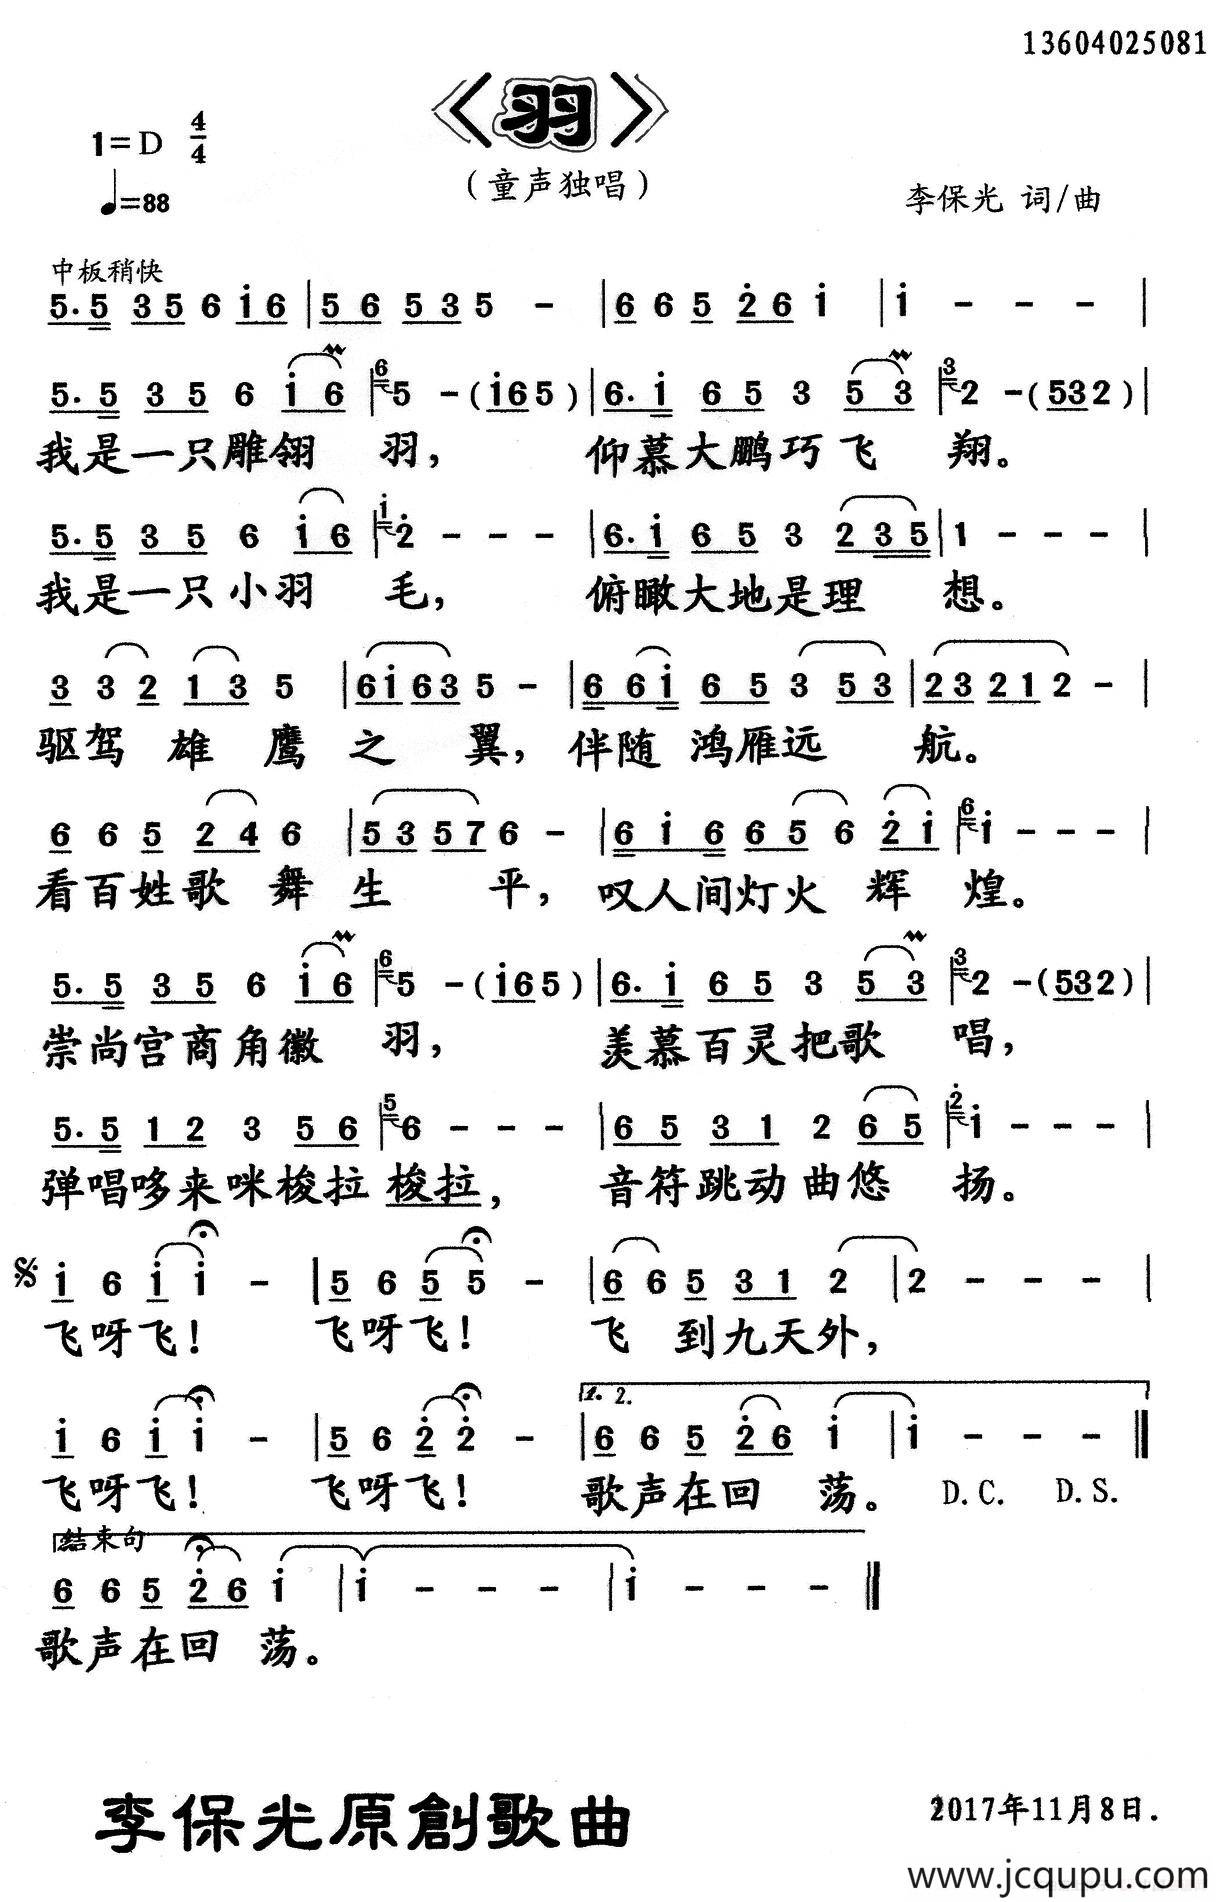 13604025081
《羽》
（童声独唱）
1=D 4/4
♩=88
李保光 词/曲
中板稍快
5·5 35 6 i6 | 56 535 - | 6 6 5 2̇6 i | i - - - |
5·5 35 6 i6 | 6 5 - (i65) | 6·i 65 3 53 | 3 2 - (532) |
我是一只雕翎 羽， 仰慕大鹏巧飞 翔。
5·5 35 6 i6 | i 2̇ - - - | 6·i 65 3 235 | 1 - - - |
我是一只小羽 毛， 俯瞰大地是理 想。
3 3 2 13 5 | 6i 63 5 - | 6 6i 65 3 53 | 23 21 2 - |
驱驾 雄 鹰 之 翼， 伴随 鸿雁远 航。
6 6 5 24 6 | 53 57 6 - | 6 i 6 65 6 2̇i | 6 i - - - |
看百姓歌 舞 生 平， 叹人间灯火 辉 煌。
5·5 35 6 i6 | 6 5 - (i65) | 6·i 65 3 53 | 3 2 - (532) |
崇尚宫商角徽 羽， 羡慕百灵把歌 唱，
5·5 12 3 56 | 5 6 - - - | 65 31 2 65 | 2̇ i - - - |
弹唱哆来咪梭拉梭拉， 音符跳动曲悠 扬。
i 6 i i - | 5 6 5 5 - | 6 6 5 31 2 | 2 - - - |
飞呀飞！ 飞呀飞！ 飞 到九天外，
i 6 i i - | 5 6 2̇ 2̇ - | 1. 2. 6 6 5 2̇6 i | i - - - ‖
飞呀飞！ 飞呀飞！ 歌声在回 荡。 D.C. D.S.
结束句
6 6 5 2̇6 i | i - - - | i - - - ‖
歌声在回 荡。
李保光原創歌曲
2017年11月8日.
www.jcqupu.com